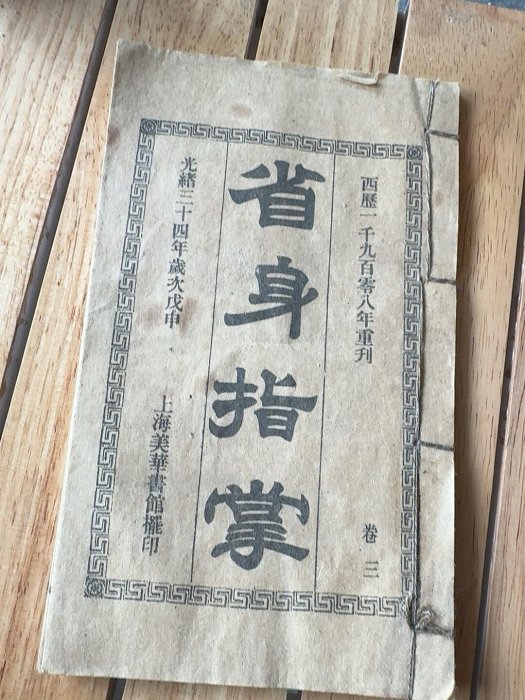 西歷一千九百零八年重刊
卷三
省身指掌
光緒三十四年歲次戊申
上海美華書館擺印